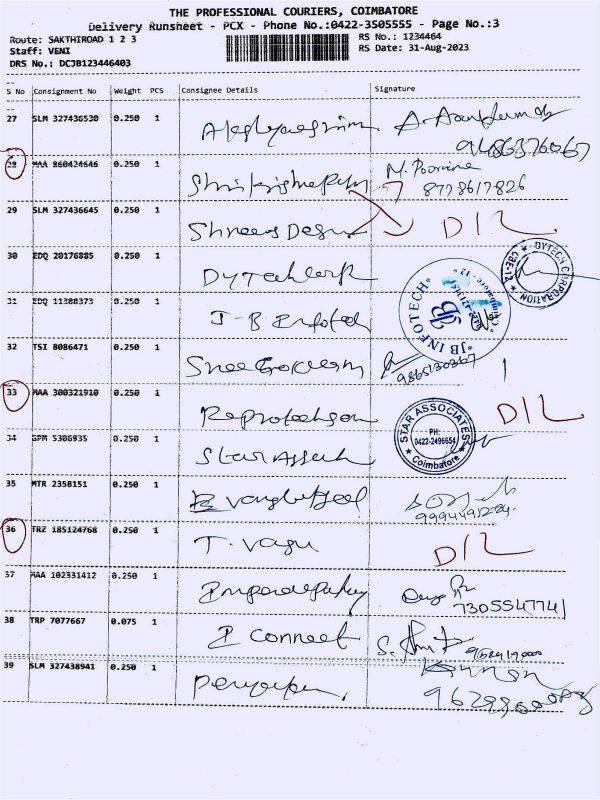 THE PROFESSIONAL COURIERS, COIMBATORE
Delivery Runsheet - PCX - Phone No.:0422-3505555 - Page No.:3
Route: SAKTHIROAD 1 2 3 RS No.: 1234464
Staff: VENI RS Date: 31-Aug-2023
DRS No.: DCJB123446403
S No Consignment No Weight PCS Consignee Details Signature
27 SLM 327436530 0.250 1
28 MAA 860424646 0.250 1 M. Poornima
8778617826
29 SLM 327436645 0.250 1 D/L
30 EDQ 20176885 0.250 1 Dytech Corp
DYTECH CORPORATION * CBE-12 *
31 EDQ 11388373 0.250 1 J-B Infotech
JB INFOTECH * Coimbatore - 12 *
32 TSI 8086471 0.250 1 Sree Gokulam
9865130367
33 MAA 300321910 0.250 1 D/L
34 GPM 5306935 0.250 1 Star Assoch
STAR ASSOCIATES
PH:
0422-2496654
* Coimbatore *
35 MTR 2358151 0.250 1
36 TRZ 185124768 0.250 1 T. Vasu D/L
37 MAA 102331412 0.250 1
7305547741
38 TRP 7077667 0.075 1 I Connect
39 SLM 327438941 0.250 1